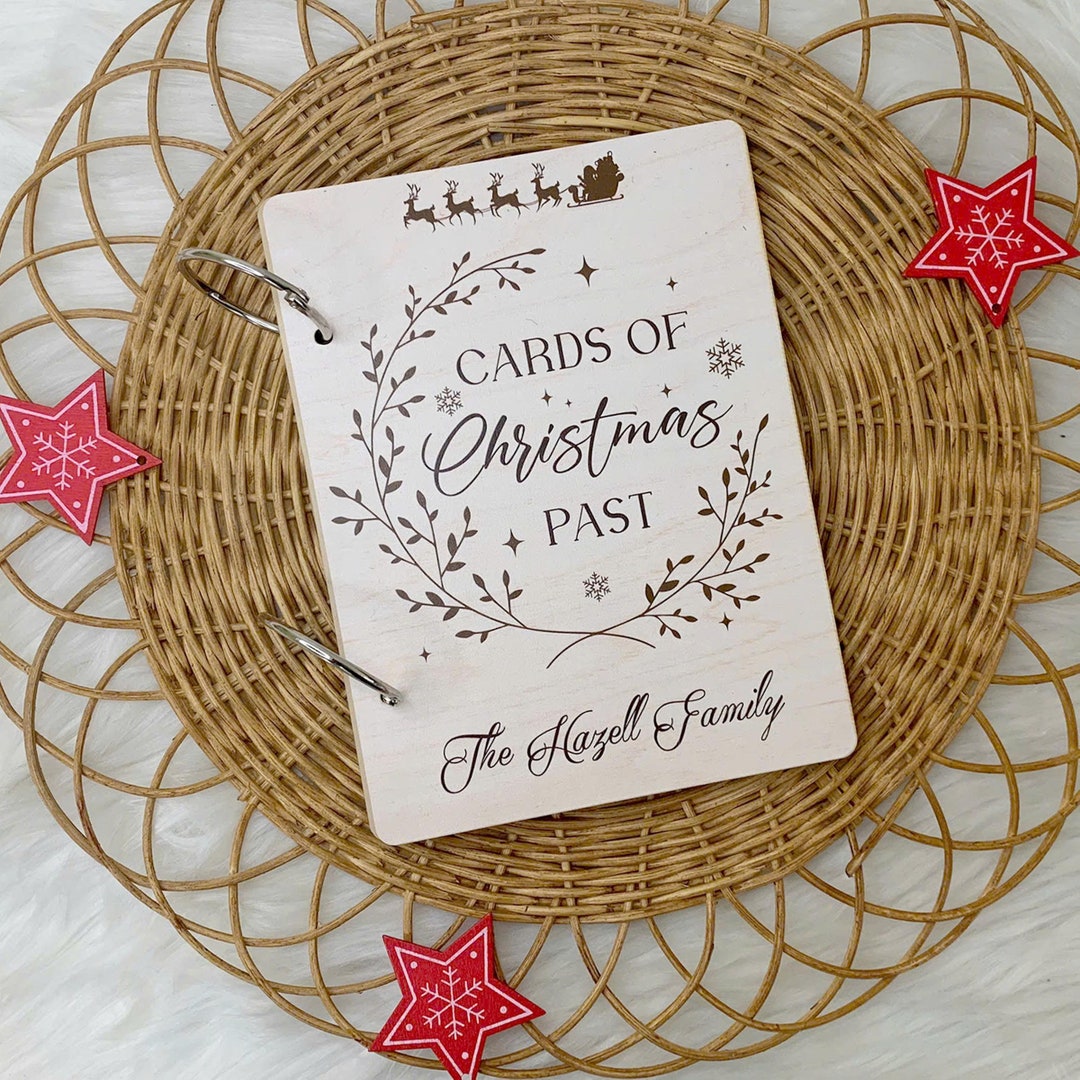 CARDS OF
Christmas
PAST
The Hazell Family